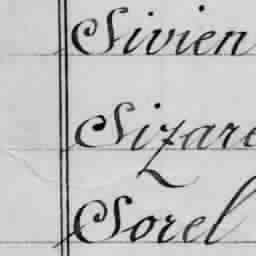 Sivien
Sizare
Sorel